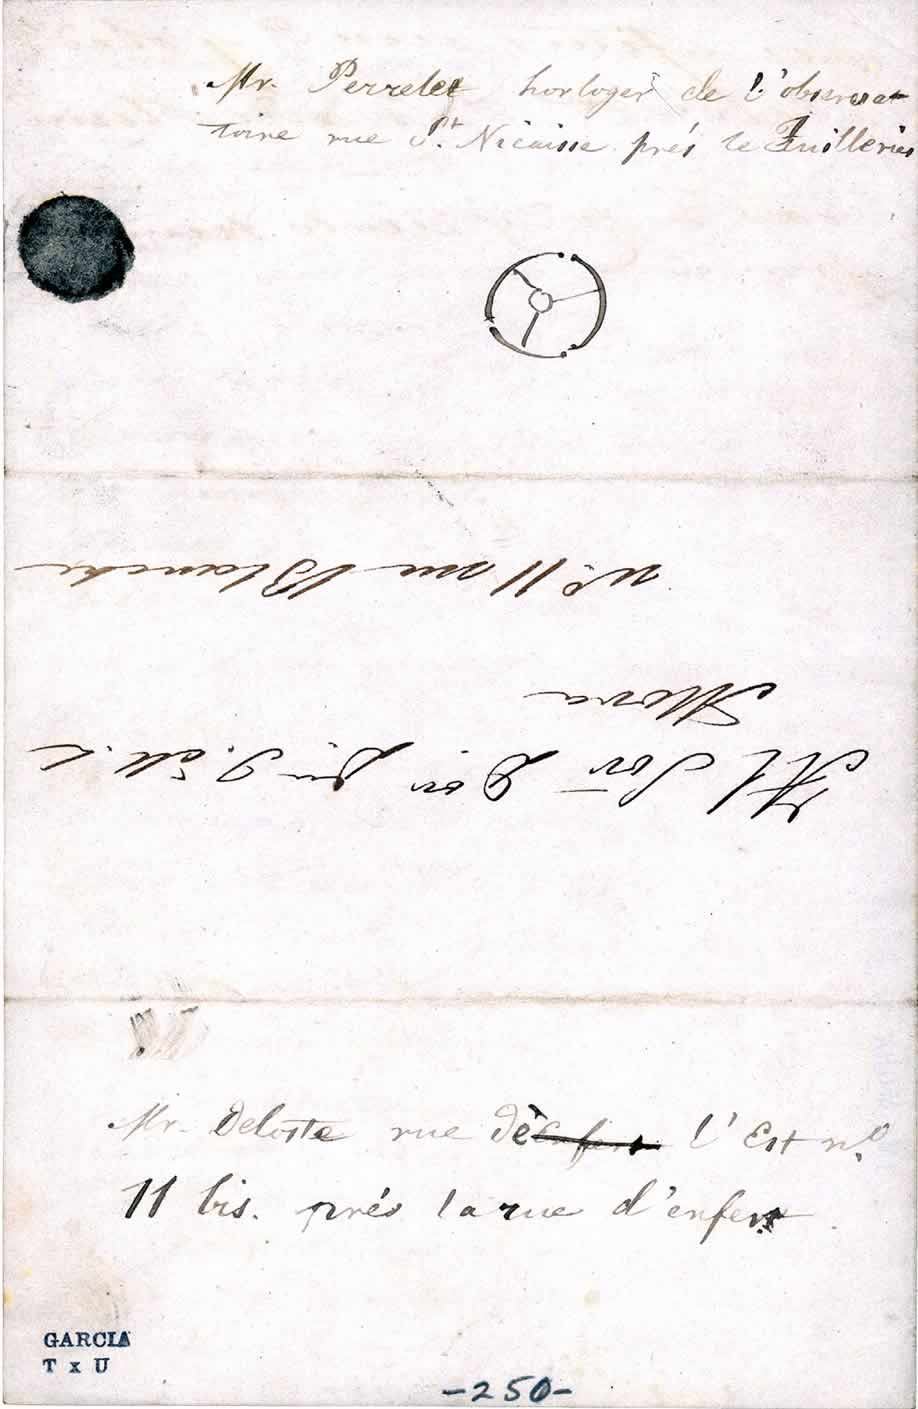 Mr. Perrelet horloger de l'observa-
toire rue St. Nicaisse prés le Tuilleries
Al Sor Don Jn J. de
Mora
no. 11 rue Blanche
Mr. Deloste rue de l'Est no.
11 bis. prés la rue d'enfer
GARCIA
T x U
-250-